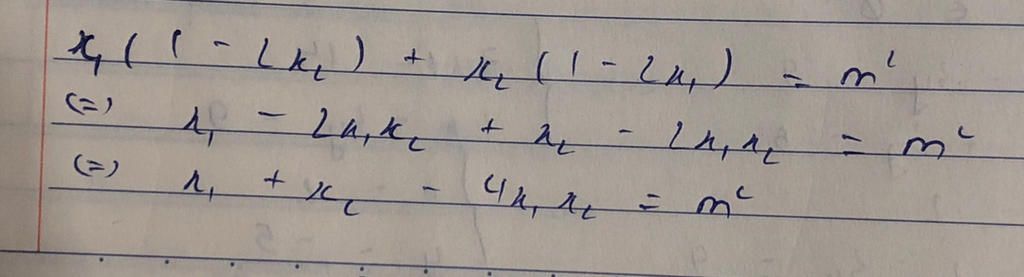 x₁ ( 1 - 2x₂ ) + x₂ ( 1 - 2x₁ ) = m²
(=) x₁ - 2x₁x₂ + x₂ - 2x₁x₂ = m²
(=) x₁ + x₂ - 4x₁x₂ = m²